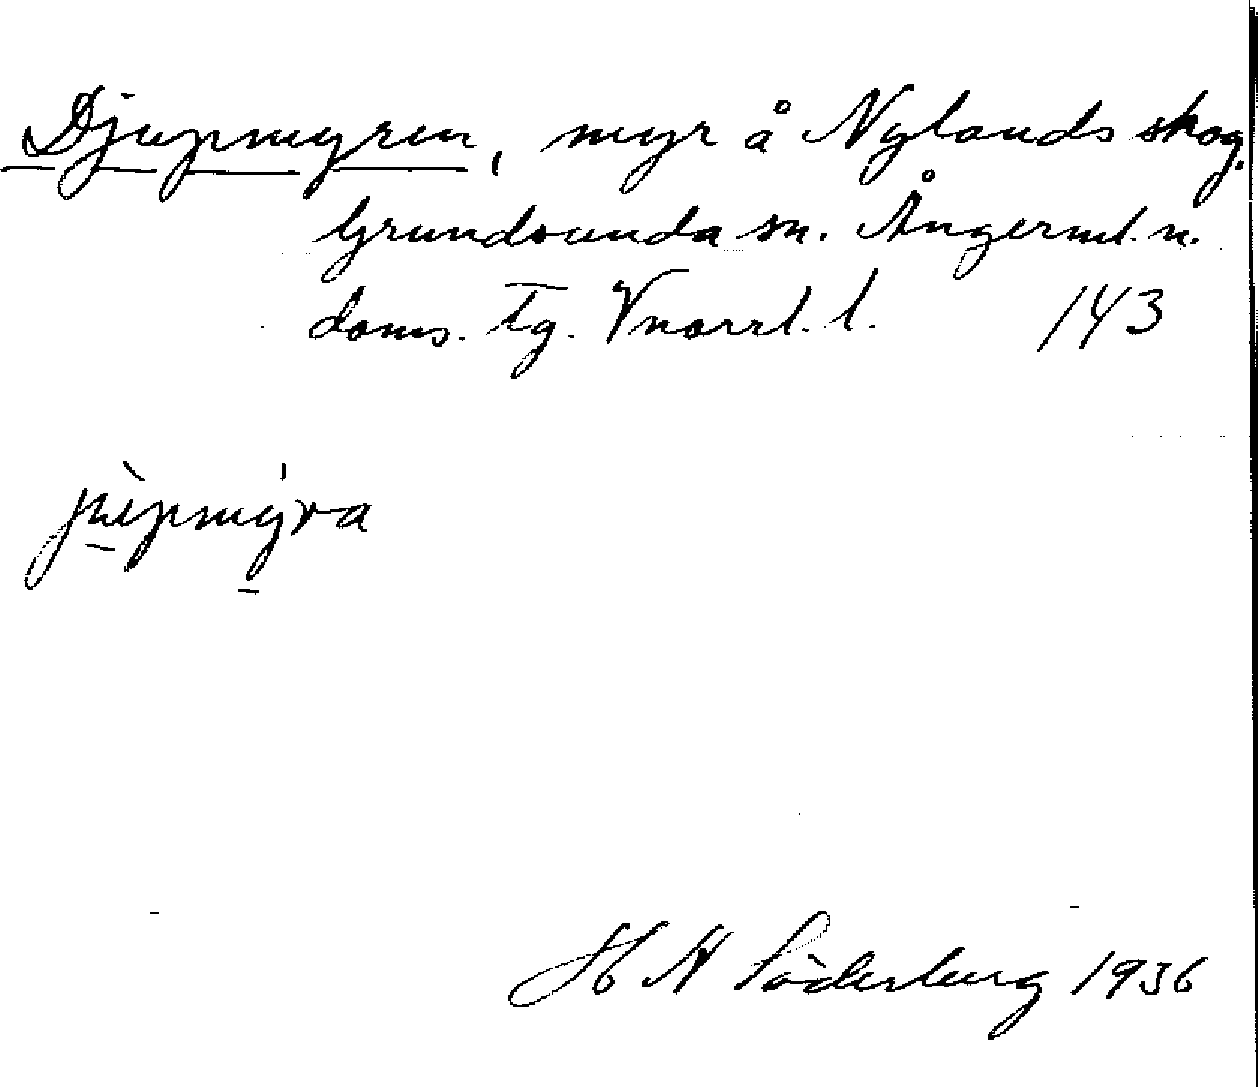 Djupmyren, myr å Nylands skog.
Grundsunda sn. Ångerml. n.
doms. Tg. Vnorrl. l. 143
jùpmýra
H H Söderberg 1936